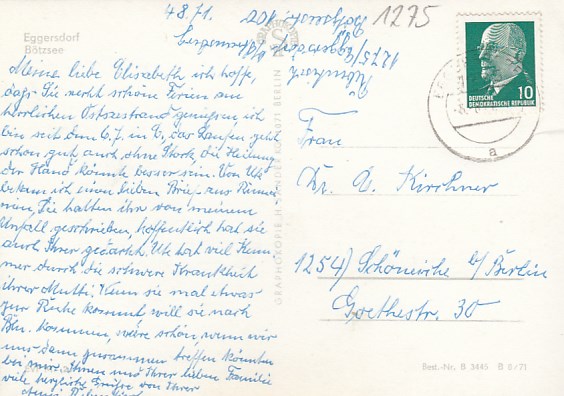 Eggersdorf
Bötzsee
4.8.71.
Meine liebe Elisabeth ich hoffe,
dass Sie recht schöne Ferien am
herrlichen Ostseestrand genießen, ich
bin seit dem 6.7. in B, das Laufen geht
schon gut, auch ohne Stock, die Heilung
der Hand könnte besser sein. Von Ute
bekam ich einen lieben Brief aus
Sie hatten ihr von meinem
Unfall geschrieben, hoffentlich hat sie
auch Ihrer gedacht. Ute hat viel Kum
mer durch die schwere Krankheit
ihrer Mutti. Wenn sie mal etwas
zur Ruhe kommt will sie nach
Bln. kommen, wäre schön, wenn wir
uns dann zusammen treffen könnten
bei mir. Ihnen und Ihrer lieben Familie
viele herzliche Grüße von Ihrer
1275
DEUTSCHE
DEMOKRATISCHE REPUBLIK
10
a
Frau
Dr. E. Kirchner
1254) Schöneiche b/Berlin
Goethestr. 30
Best.-Nr. B 3445 B 8/71